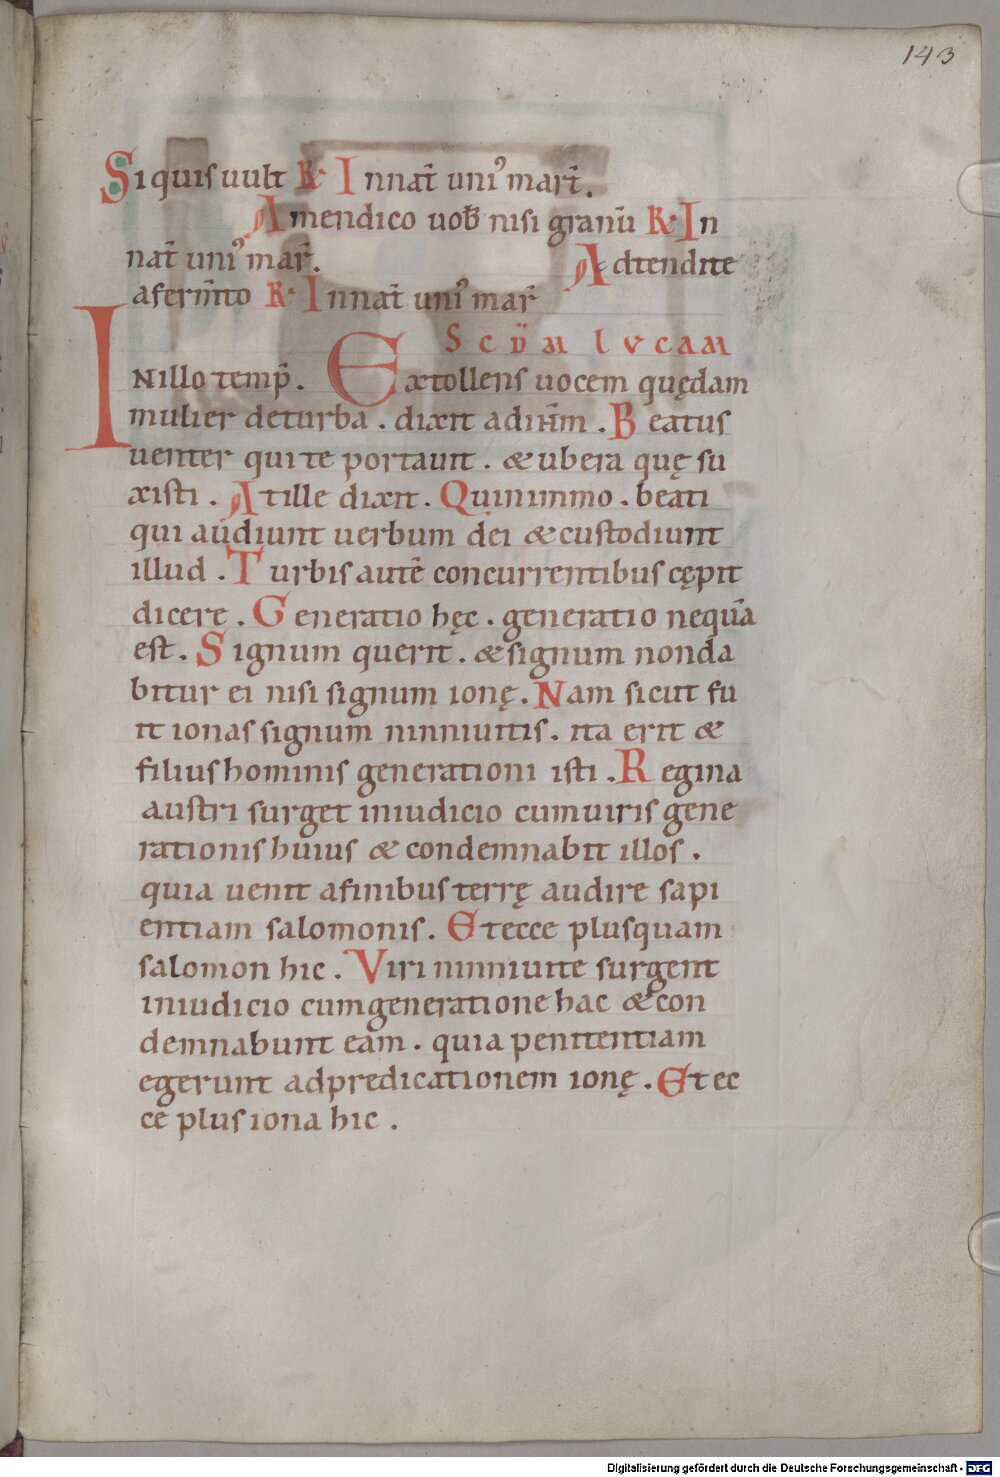 143
Si quis uult R In nat̄ uni' mart̄.
Amendico uob̄ nisi granū R In
nat̄ uni' mar̄.
Adtendite
a ferm̄to R In nat̄ uni' mar̄
Scd̄m lucam
In illo temp̄. Extollens uocem quędam
mulier deturba. dixit ad ihm̄. Beatus
uenter qui te portauit. & ubera quę su
xisti. At ille dixit. Quinimmo. beati
qui audiunt uerbum dei & custodiunt
illud. Turbis autē concurrentibus cępit
dicere. Generatio hęc. generatio nequā
est. Signum querit. & signum non da
bitur ei nisi signum ionę. Nam sicut fu
it ionas signum niniuitis. ita erit &
filius hominis generationi isti. Regina
austri surget iniudicio cumuiris gene
rationis huius & condemnabit illos.
quia uenit afinibus terrę audire sapi
entiam salomonis. Et ecce plusquam
salomon hic. Viri niniuite surgent
iniudicio cumgeneratione hac & con
demnabunt eam. quia penitentiam
egerunt adpredicationem ionę. Et ec
ce plus iona hic.
Digitalisierung gefördert durch die Deutsche Forschungsgemeinschaft - DFG